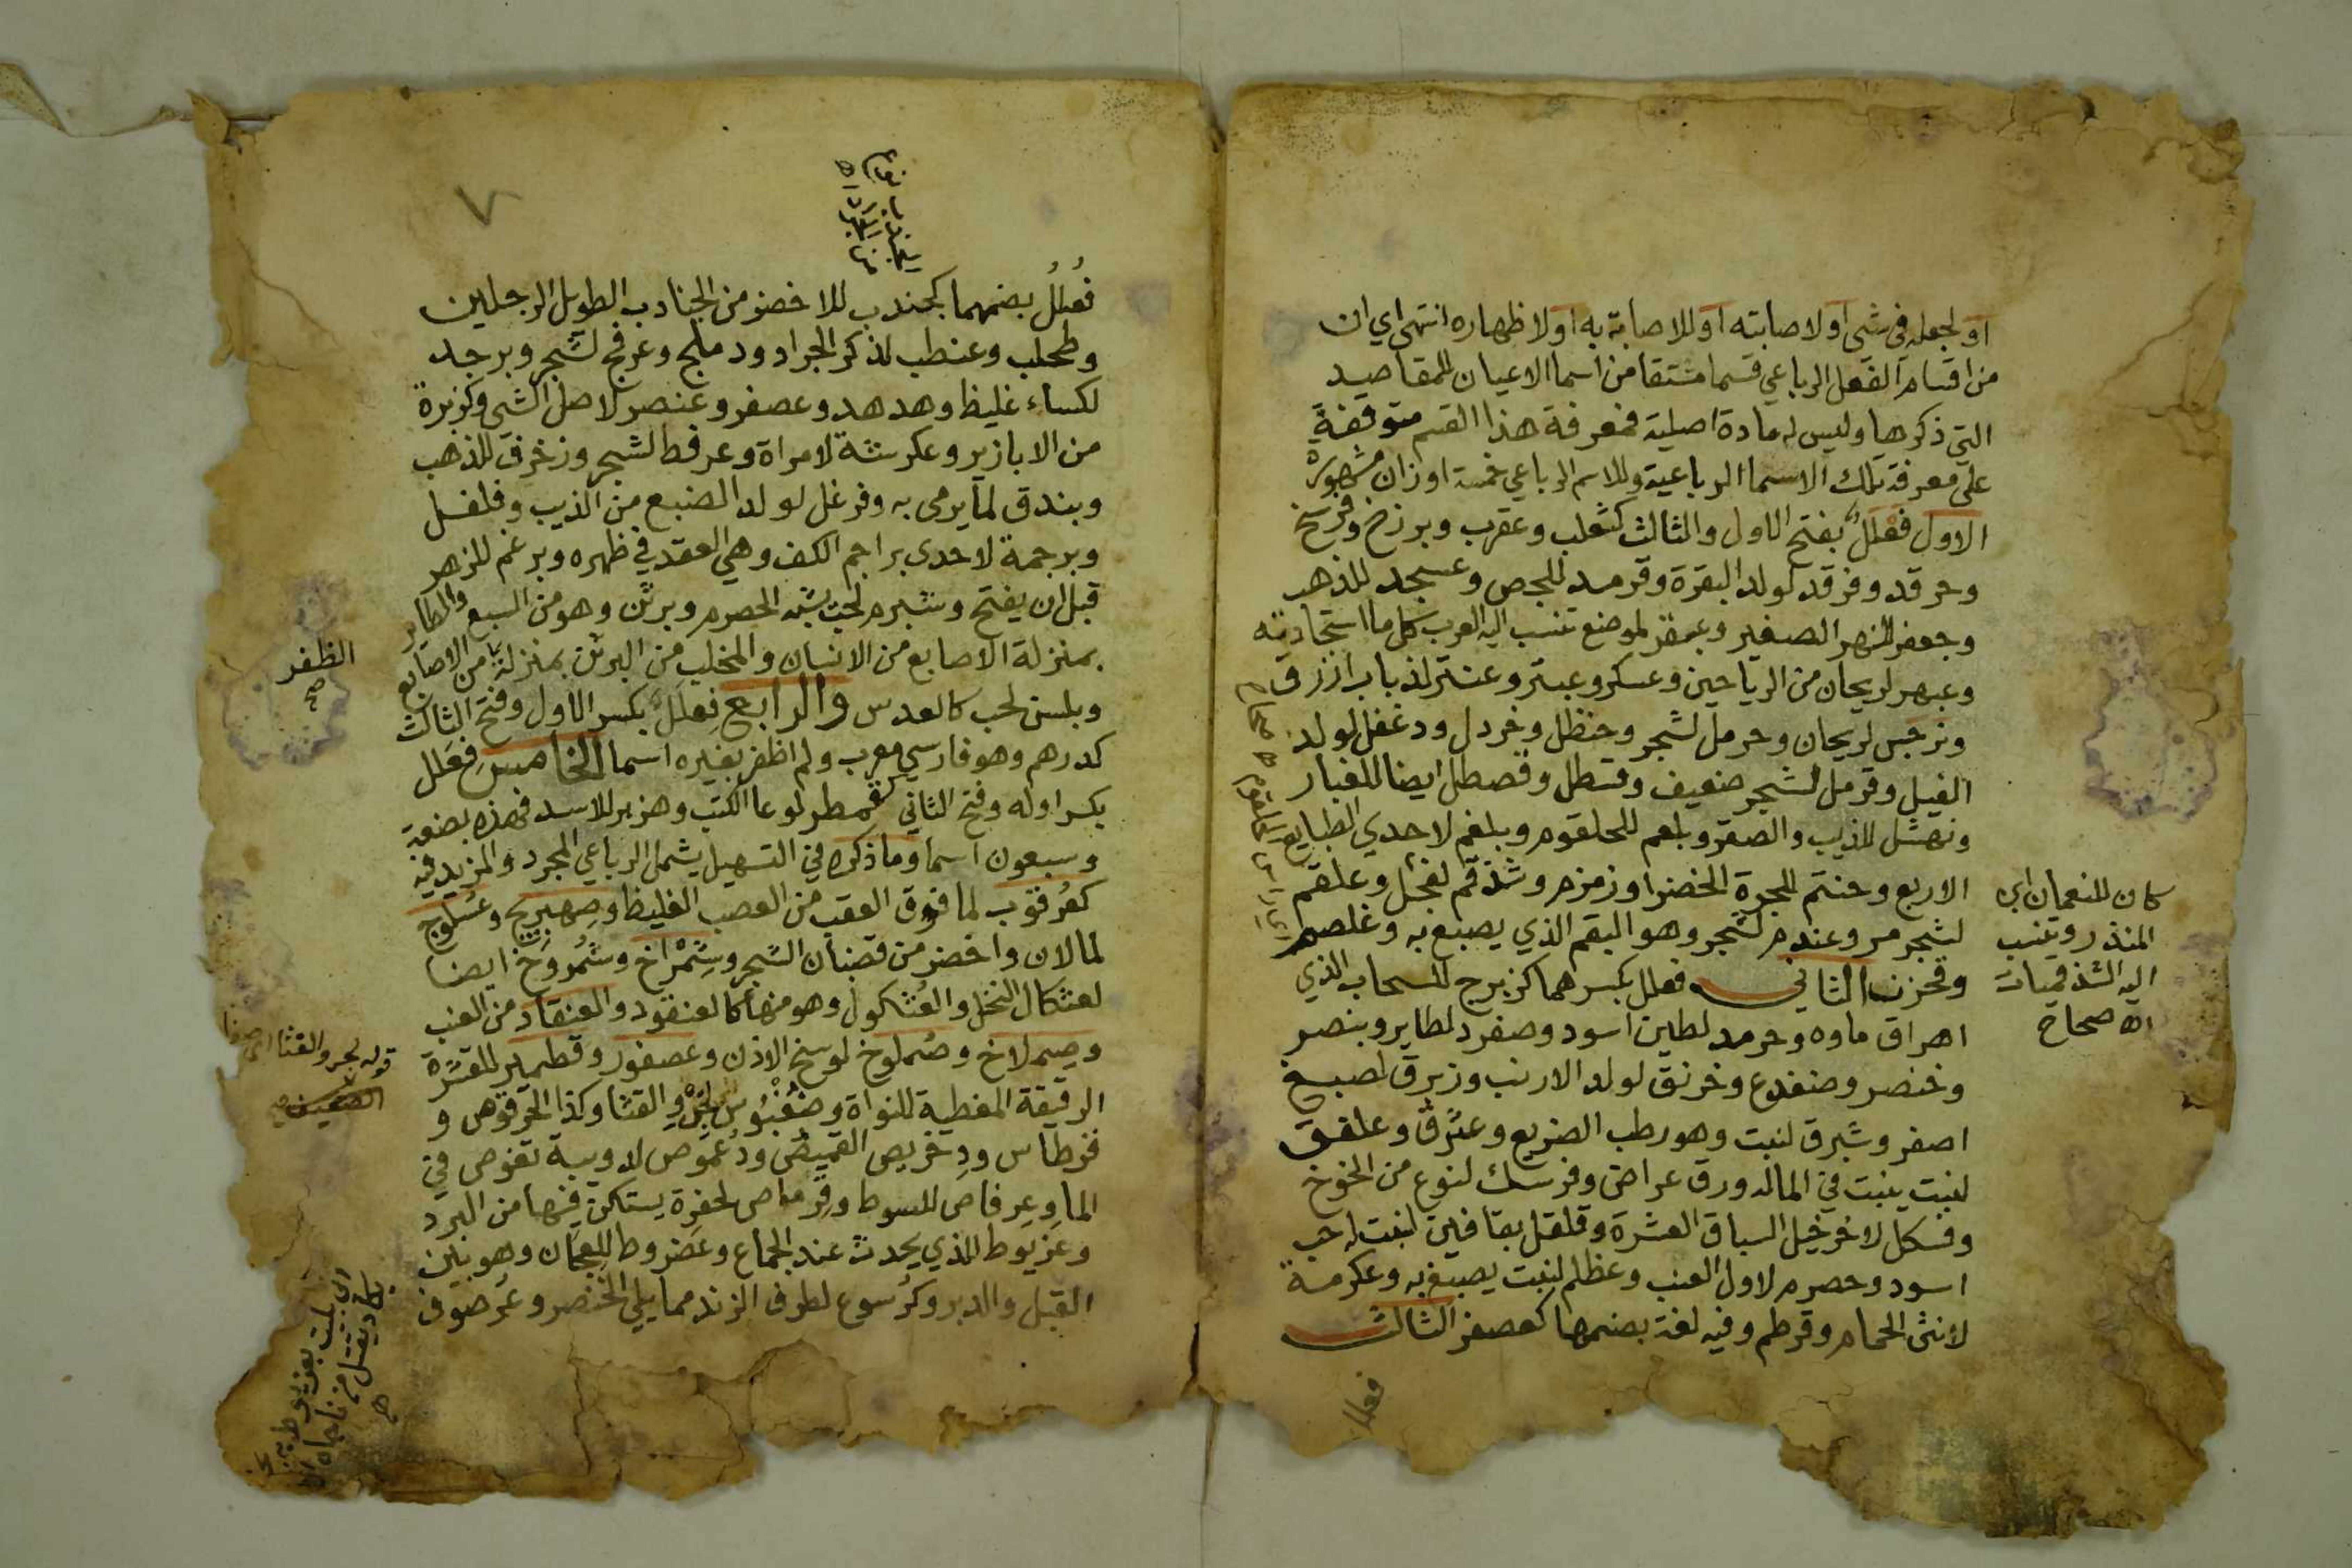 او لجعله في شي او لاصابته او للاصابة به او لاظهاره انتهى اي ان
من اقسام الفعل الرباعي قسما مشتقا من اسما الاعيان للمقاصيد
التي ذكرها وليس له مادة اصلية فمعرفة هذا القسم متوقفة
على معرفة تلك الاسما الرباعية وللاسم الرباعي خمسة اوزان مشهورة
الاول فعلل بفتح الاول والثالث كثعلب وعقرب وبرزخ وفرسخ
وحرقد وفرقد لولد البقرة وقرمد للجص وعسجد للذهب
وجعفر للنهر الصغير وعبقر لموضع تنسب اليه العرب كل ما استجادته
وعبهر لريحان من الرياحين وعسكر وعبتر وعنتر لذباب ازرق
ونرجس لريحان وحرمل لشجر وحنظل وخردل ودغفل لولد
الفيل وقرمل لشجر ضعيف وقسطل وقصطل ايضا للغبار
ونهشل للذيب والصقر وبلعم للحلقوم وبلغم لاحدي الطبايع
الاربع وحنتم للجرة الخضرا وزمزم وشذقم لفحل وعلقم
لشجر مر وعندم لشجر وهو البقم الذي يصبغ به وغلصم
وقحزن الثاني فعلل بكسرهما كزبرج للسحاب الذي
اهراق ماوه وحرمد لطين اسود وصفرد لطاير وبنصر
وخنصر وضفدع وخرنق لولد الارنب وزبرق لصبغ
اصفر وشبرق لنبت وهو رطب الضريع وعترق وعلفق
لنبت ينبت في الما له ورق عراض وفرسك لنوع من الخوخ
وفسكل لاخر خيل السباق العشرة وقلقل بقافين لنبت له حب
اسود وحصرم لاول العنب وعظلم لنبت يصبغ به وعكرمة
لانثى الحمام وقرطم وفيه لغة بضمها كعصفر الثالث
فعلل
كان للنعمان ابن
المنذر وينسب
اليه الشذقميات
اه صحاح
فعلل بضمهما كجندب للاخضر من الجنادب الطويل الرجلين
وطحلب وعنطب لذكر الجراد ودملج وعرفج لشجر وبرجد
لكساء غليظ وهدهد وعصفر وعنصر لاصل الشي وكزبرة
من الابازير وعكرشة لامراة وعرفط لشجر وزخرف للذهب
وبندق لما يرمى به وفرغل لولد الضبع من الذيب وفلفل
وبرجمة لاحدى براجم الكف وهي العقد في ظهره وبرعم للزهر
قبل ان يفتح وشبرم لحب يشبه الحصرم وبرثن وهو من السبع والطاير
بمنزلة الاصابع من الانسان والمخلب من البرثن بمنزلة من الاصابع
وبلسن لحب كالعدس والرابع فعلل بكسر الاول وفتح الثالث
كدرهم وهو فارسي معرب ولم اظفر بغيره اسما الخامس فعلل
بكسر اوله وفتح الثاني كقمطر لوعا الكتب وهزبر للاسد فهذه بضعة
وسبعون اسما وما ذكره في التسهيل يشمل الرباعي المجرد والمزيد فيه
كعرقوب لما فوق العقب من العصب الغليظ وصهريج وعسلوج
لما لان واخضر من قضبان الشجر وشمراخ وشمروخ ايضا
لعثكال النخل والعثكول وهو منها كالعنقود والعنقاد من العنب
وصملاخ وصملوخ لوسخ الاذن وعصفور وقطمير للقشرة
الرقيقة المغطية للنواة وضغبوس لجرو القثا وكذا الحرقوص و
قرطاس ودخريص القميص ودعموص لدويبة تغوص في
الما وعرفاص للسوط وقرماص لحفرة يستكن فيها من البرد
وعزيوط للذي يحدث عند الجماع وعضروط للعجان وهو بين
القبل والدبر وكرسوع لطرف الزند مما يلي الخنصر وعرصوف
الظفر
صح
قوله لجرو القثا اي صغا